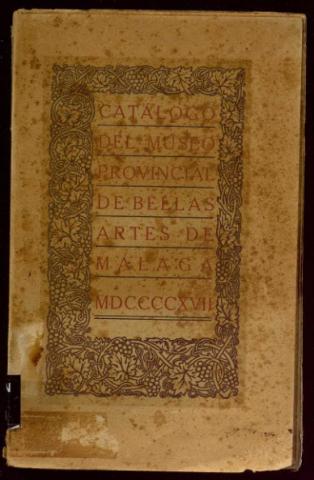 CATÁLOGO
DEL MUSEO
PROVINCIAL
DE BELLAS
ARTES DE
MÁLAGA
MDCCCCXVII